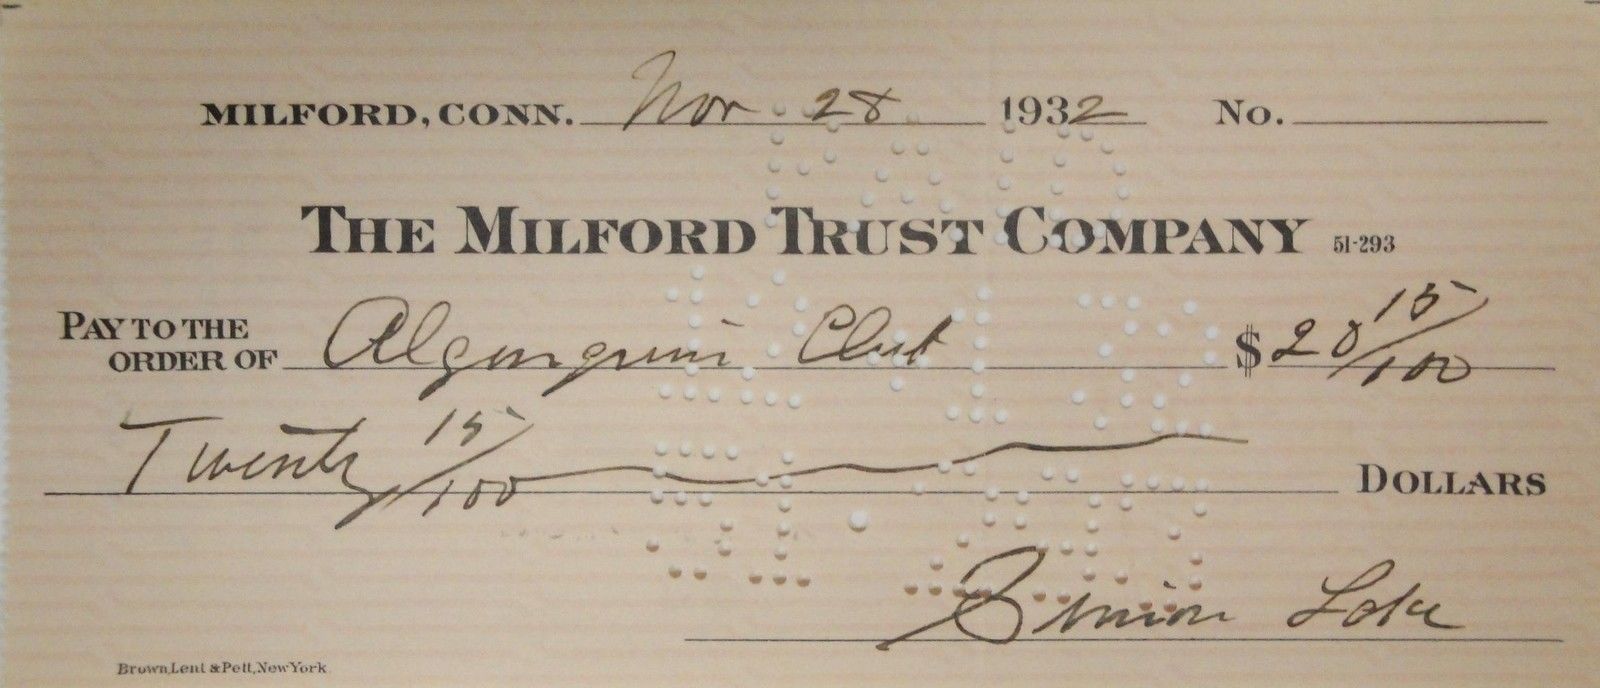 MILFORD, CONN. Nov 28 1932 No.
THE MILFORD TRUST COMPANY 51-293
PAY TO THE ORDER OF Algonquin Club $20 15/100
Twenty 15/100 DOLLARS
Simon Lake
Brown, Lent & Pett, New York.